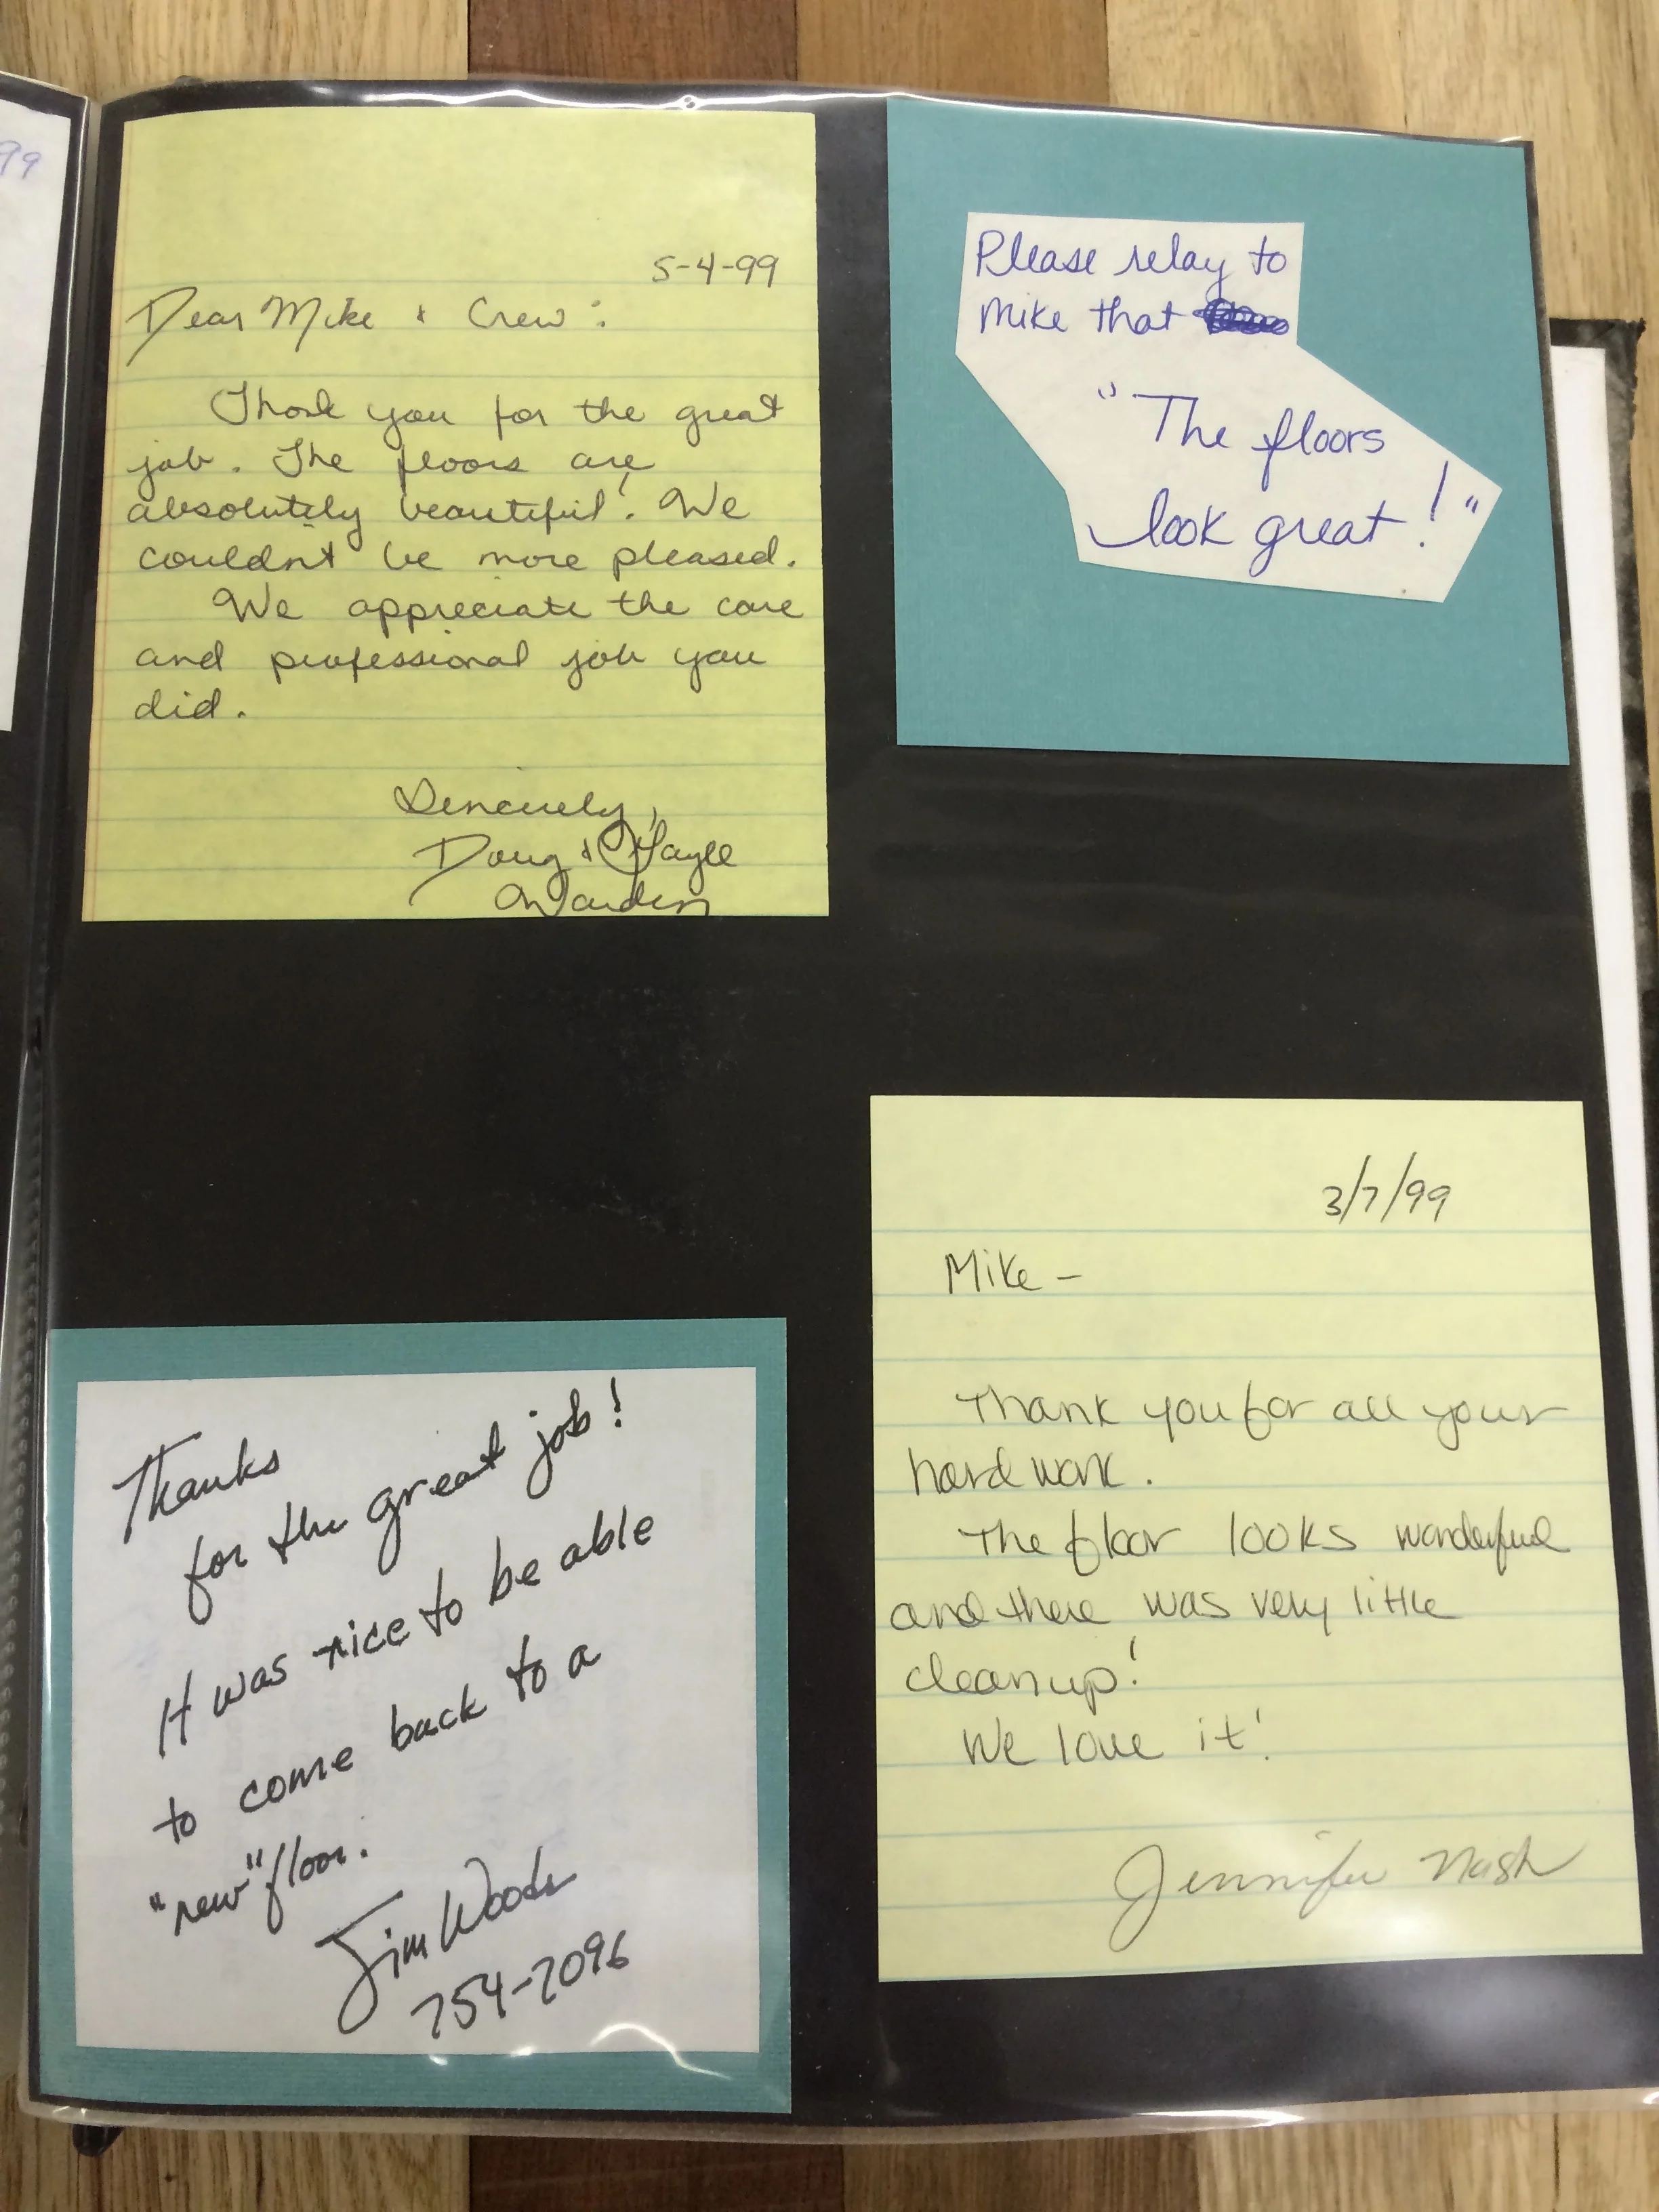 99
5-4-99
Dear Mike & Crew:
Thank you for the great
job. The floors are
absolutely beautiful! We
couldn't be more pleased.
We appreciate the care
and professional job you
did.
Sincerely,
Doug & Gayle
Warden
Please relay to
Mike that
"The floors
look great!"
Thanks
for the great job!
It was nice to be able
to come back to a
"new" floor.
Jim Woods
754-2096
3/7/99
Mike -
Thank you for all your
hard work.
The floor looks wonderful
and there was very little
cleanup!
We love it!
Jennifer Nash